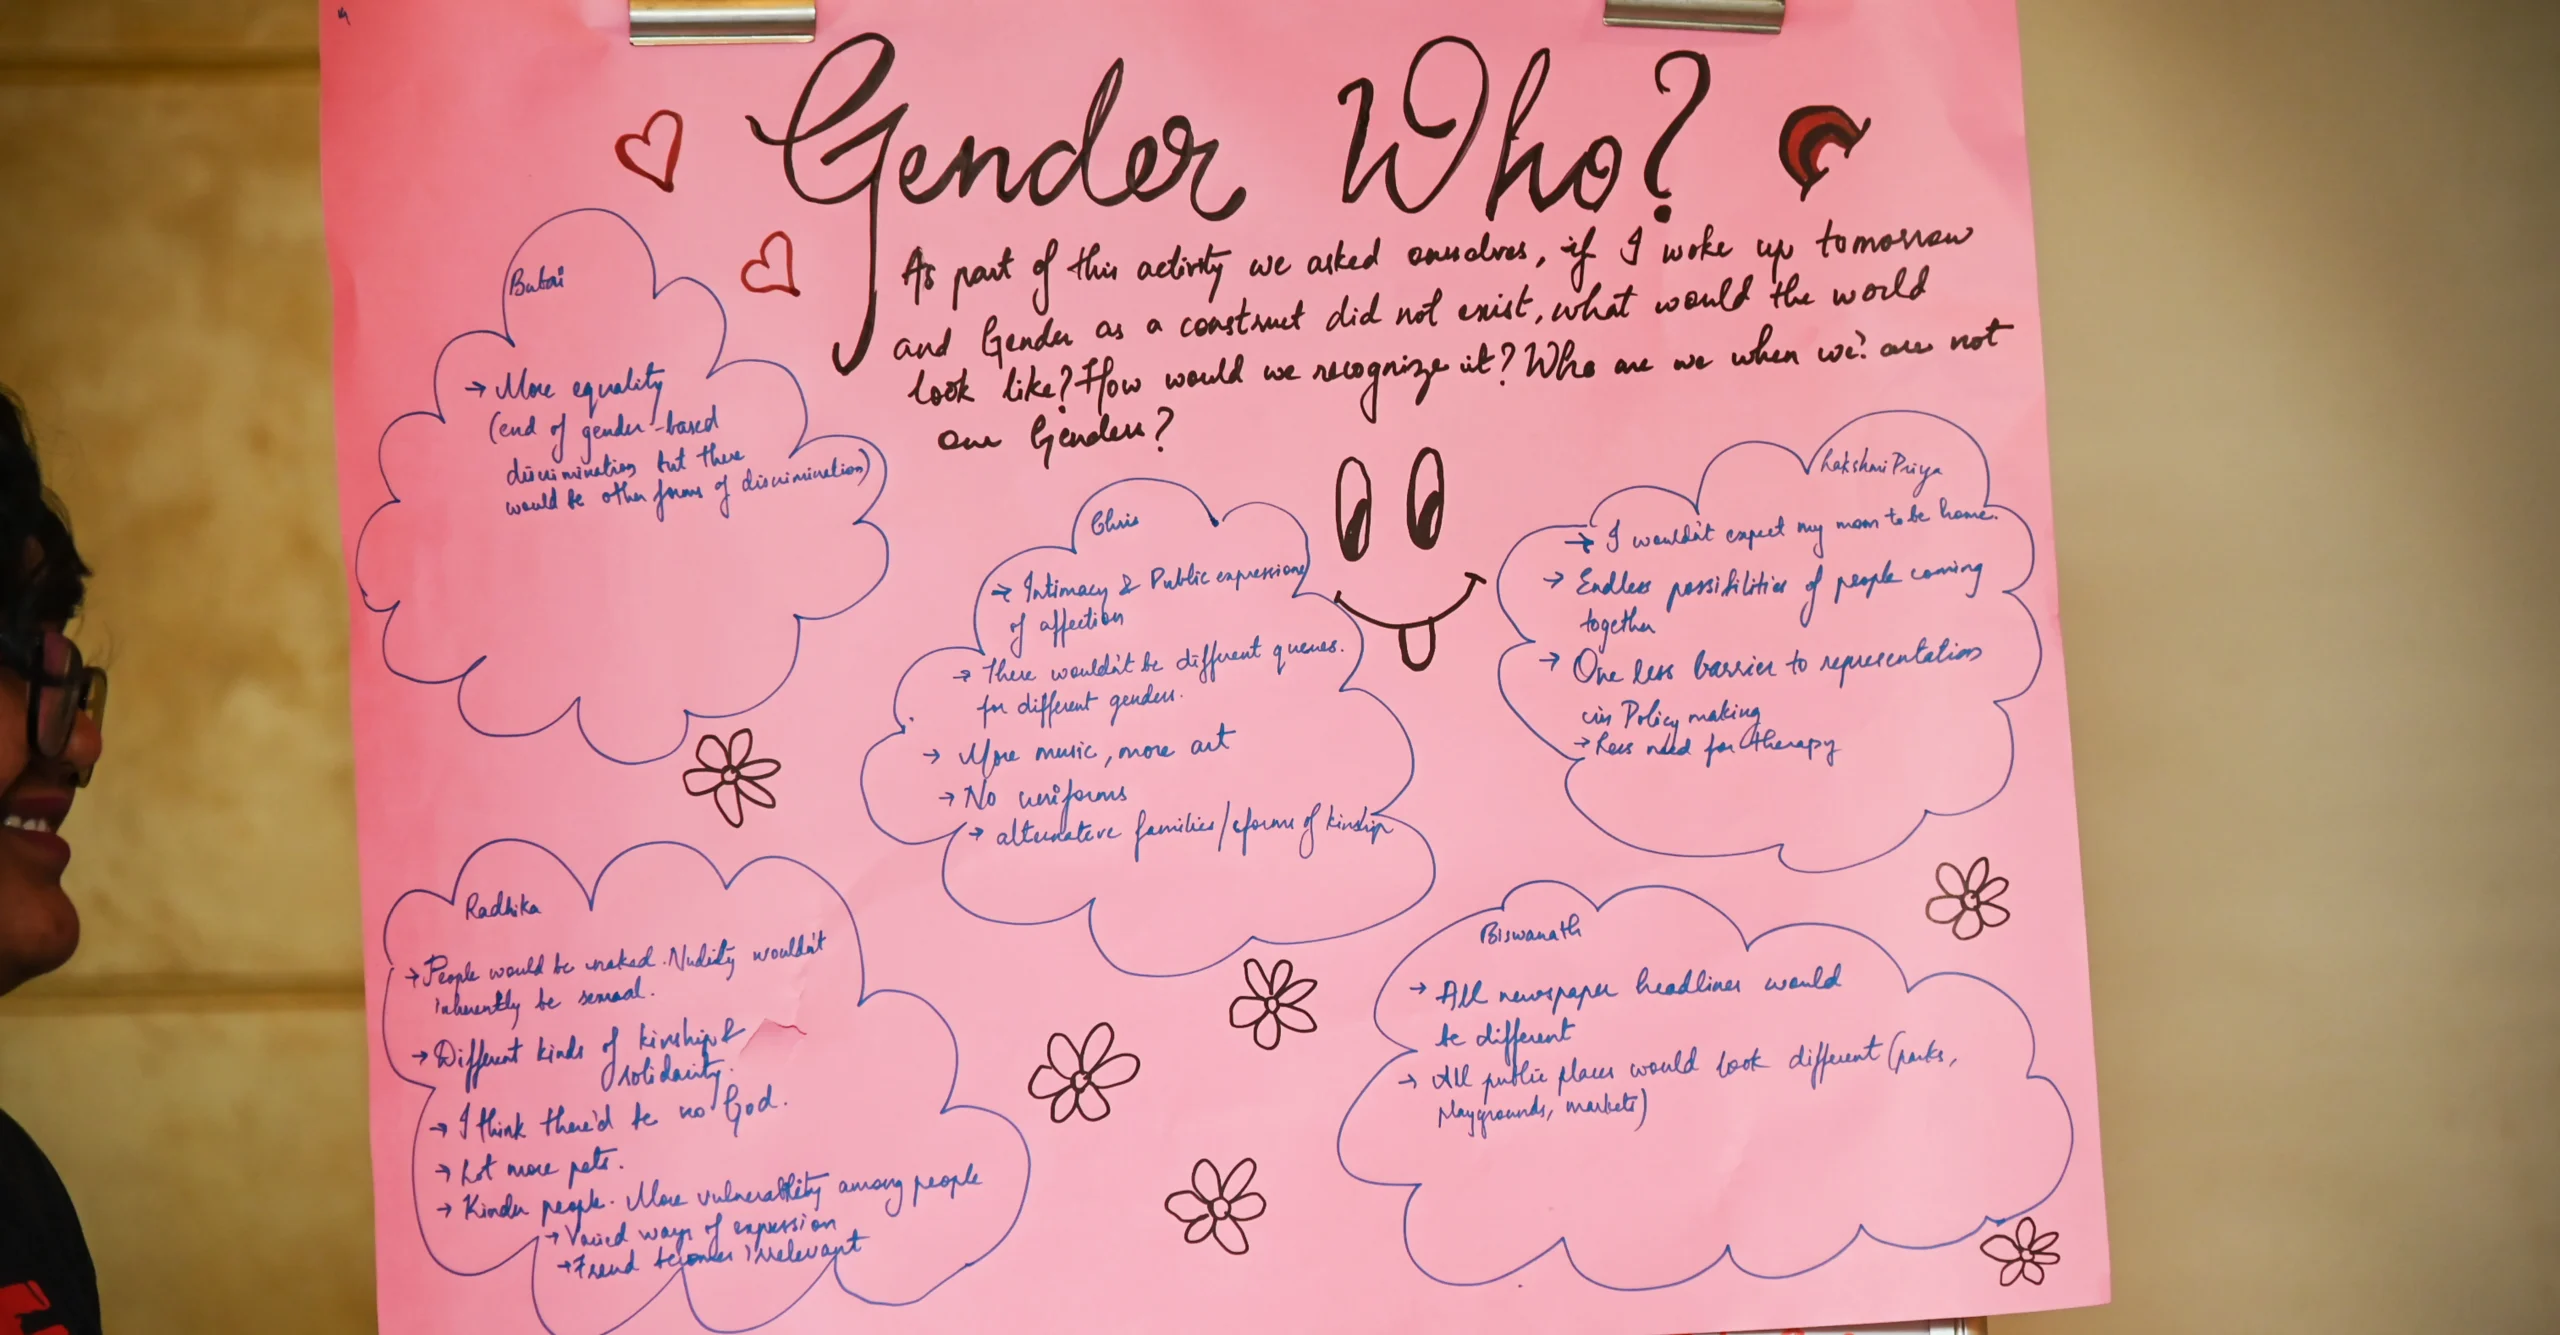 Gender Who?
As part of this activity we asked ourselves, if I woke up tomorrow
and Gender as a construct did not exist, what would the world
look like? How would we recognize it? Who are we when we? are not
our Genders?
Bubai
→ More equality
(end of gender-based
discrimination but there
would be other forms of discrimination)
Chris
→ Intimacy & Public expressions
of affection
→ There wouldn't be different queues.
for different genders.
→ More music, more art
→ No uniforms
→ alternative families/forms of kinship
Lakshmi Priya
→ I wouldn't expect my mom to be home.
→ Endless possibilities of people coming
together
→ One less barrier to representation
in Policy making
→ Less need for therapy
Radhika
→ People would be naked. Nudity wouldn't
inherently be sexual.
→ Different kinds of kinship &
solidarity.
→ I think there'd be no God.
→ Lot more pets.
→ Kinder people. More vulnerability among people
→ Varied ways of expression
→ Freud becomes irrelevant
Biswanath
→ All newspaper headlines would
be different
→ All public places would look different (parks,
playgrounds, markets)